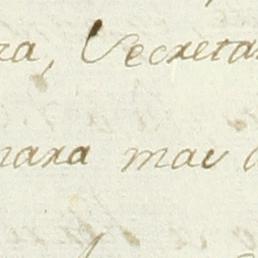 ra, Secreta
nara mau